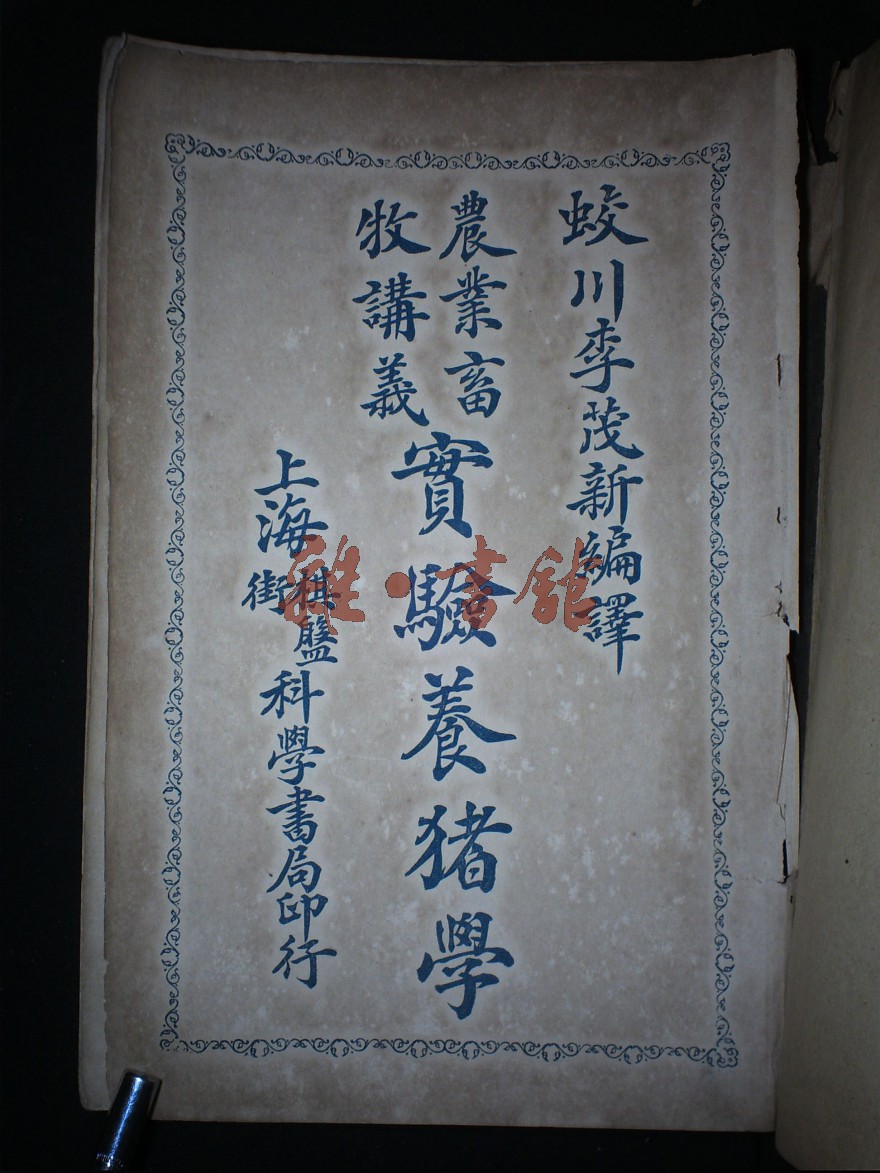 蛟川李茂新編譯
農業畜
牧講義
實驗養猪學
上海棋盤街科學書局印行
雜·書館